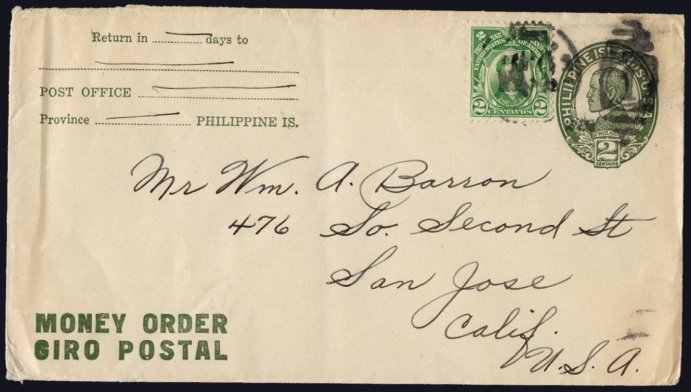 Return in days to
POST OFFICE
Province PHILIPPINE IS.
2 2
CENTAVOS
PHILIPPINE ISLANDS U.S.A.
2
CENTAVOS
Mr Wm. A. Barron
476 So. Second St
San Jose
Calif.
U.S.A.
MONEY ORDER
GIRO POSTAL